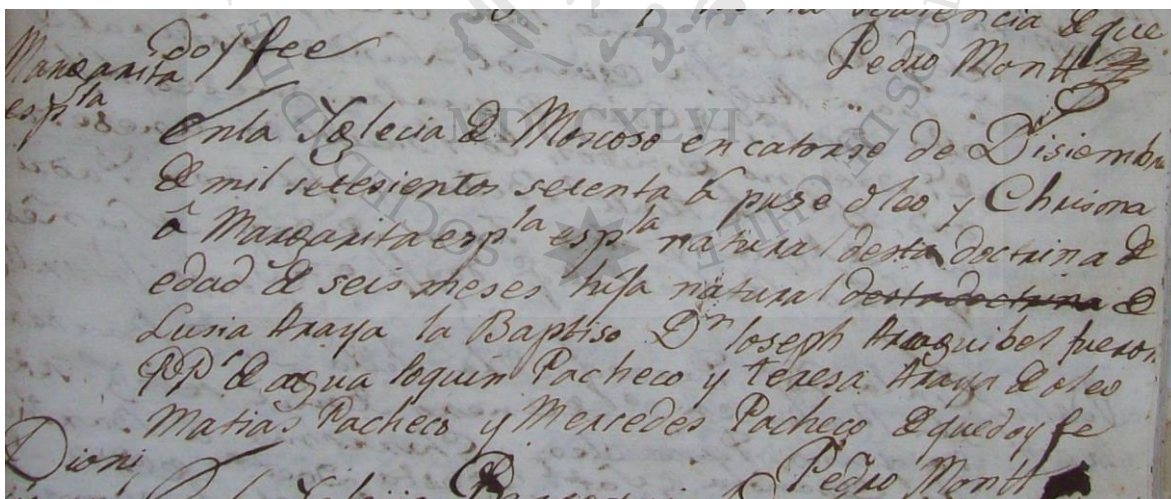 que
doy fee
Pedro Montt
Margarita
espla
En la Yglecia de Morcoso en catorse de Disiembre
de mil setesientos setenta
puse oleo y Chrisma
â Margarita espla espla natural desta doctrina de
edad de seis meses hija natural desta doctrina de
Lusia Araya la Baptiso Dn Joseph Araquibel fueron
PP de agua Joquin Pacheco y Teresa Araya de oleo
Matias Pacheco y Mercedes Pacheco de que doy fe
Pedro Montt
Dioni
MDCCXLVI